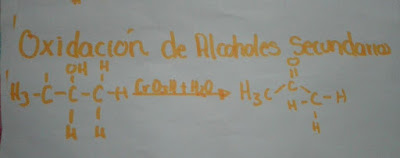 Oxidación de Alcoholes Secundarios
O
OH H
H3-C-C-C-H CrO3H+H2O H3C C C-H
H
H H H